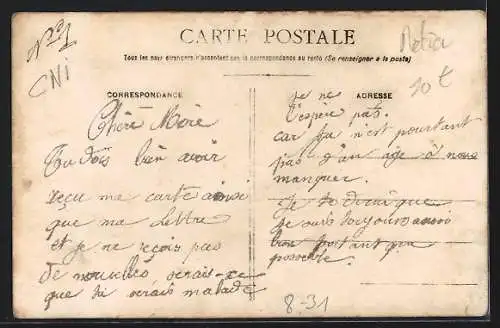 CNi
Métier
10 €
CARTE POSTALE
Tous les pays étrangers n'acceptent pas la correspondance au recto (Se renseigner à la poste)
CORRESPONDANCE
Chère
Tu dois bien avoir
reçu ma carte ainsi
que ma lettre
et je ne reçois pas
de nouvelles serais-ce
que tu serais malade
ADRESSE
je ne
l'espère pas.
car tu n'est pourtant
pas d'un age à nous
manquer.
Je te dirai que
je suis toujours aussi
bien portant que
possible.
8-31